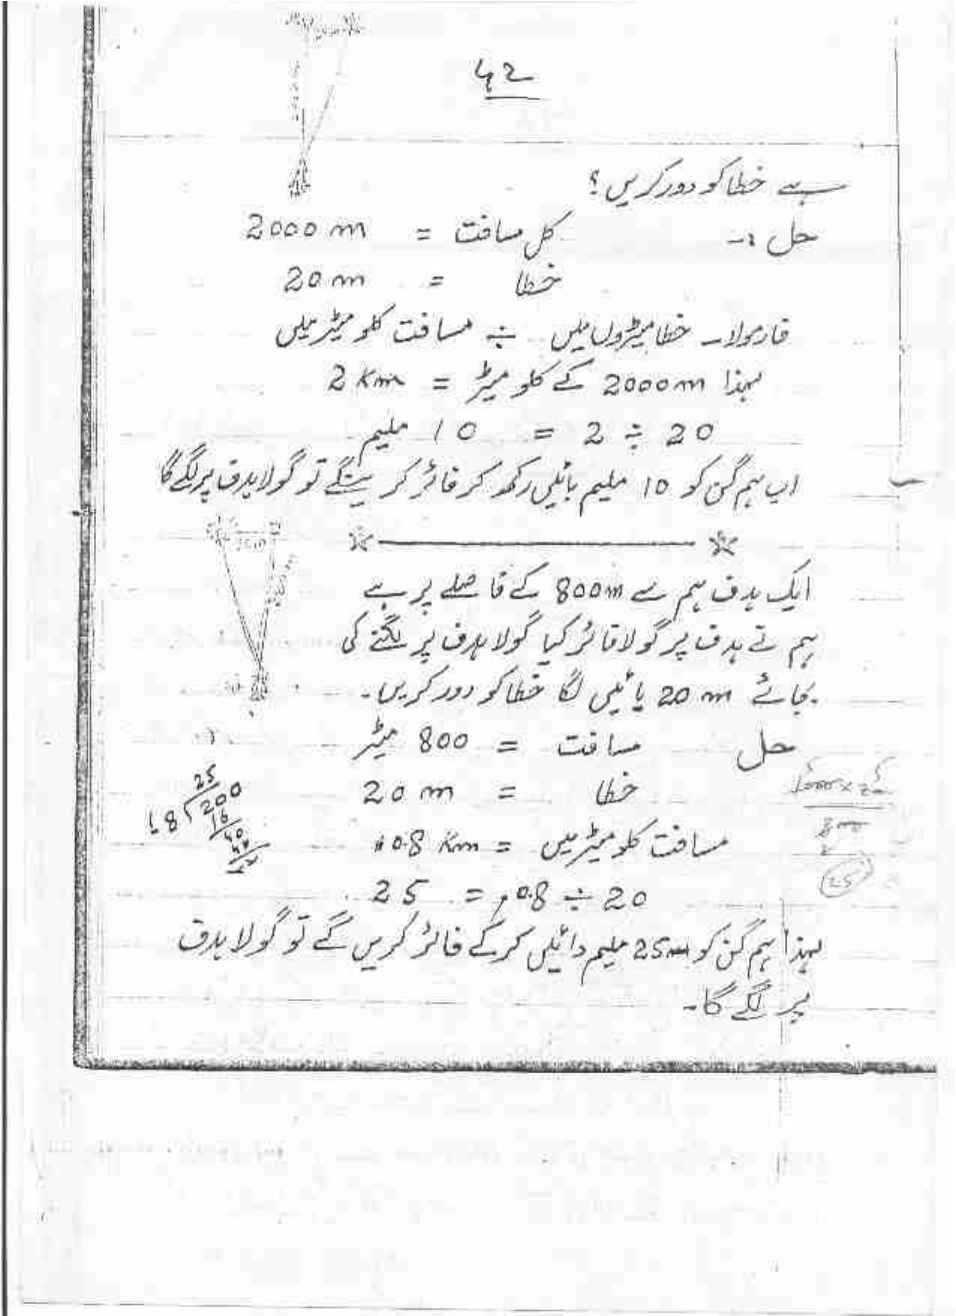 ۴۲
ہے خطا کو دور کریں؟
حل :- کل مسافت = 2000 m
خطا = 20 m
فارمولا۔ خطا میٹروں میں ÷ مسافت کلو میٹر میں
لہذا 2000m کے کلو میٹر = 2 Km
20 ÷ 2 = 10 ملیم
اب ہم گن کو 10 ملیم بائیں رکھ کر فائر کر یگے تو گولا ہدف پر لگے گا
ایک ہدف ہم سے 800m کے فاصلے پر ہے
ہم نے ہدف پر گولا فائر کیا گولا ہدف پر لگنے کی
بجائے 20 m بائیں لگا خطا کو دور کریں۔
حل مسافت = 800 میٹر
خطا = 20 m
مسافت کلو میٹر میں = 0.8 Km
20 ÷ 0.8 = 25
لہذا ہم گن کو 25m ملیم دائیں کر کے فائر کریں گے تو گولا ہدف
پر لگے گا۔
25
8 200
16
40
40
1000 × 20
800
25